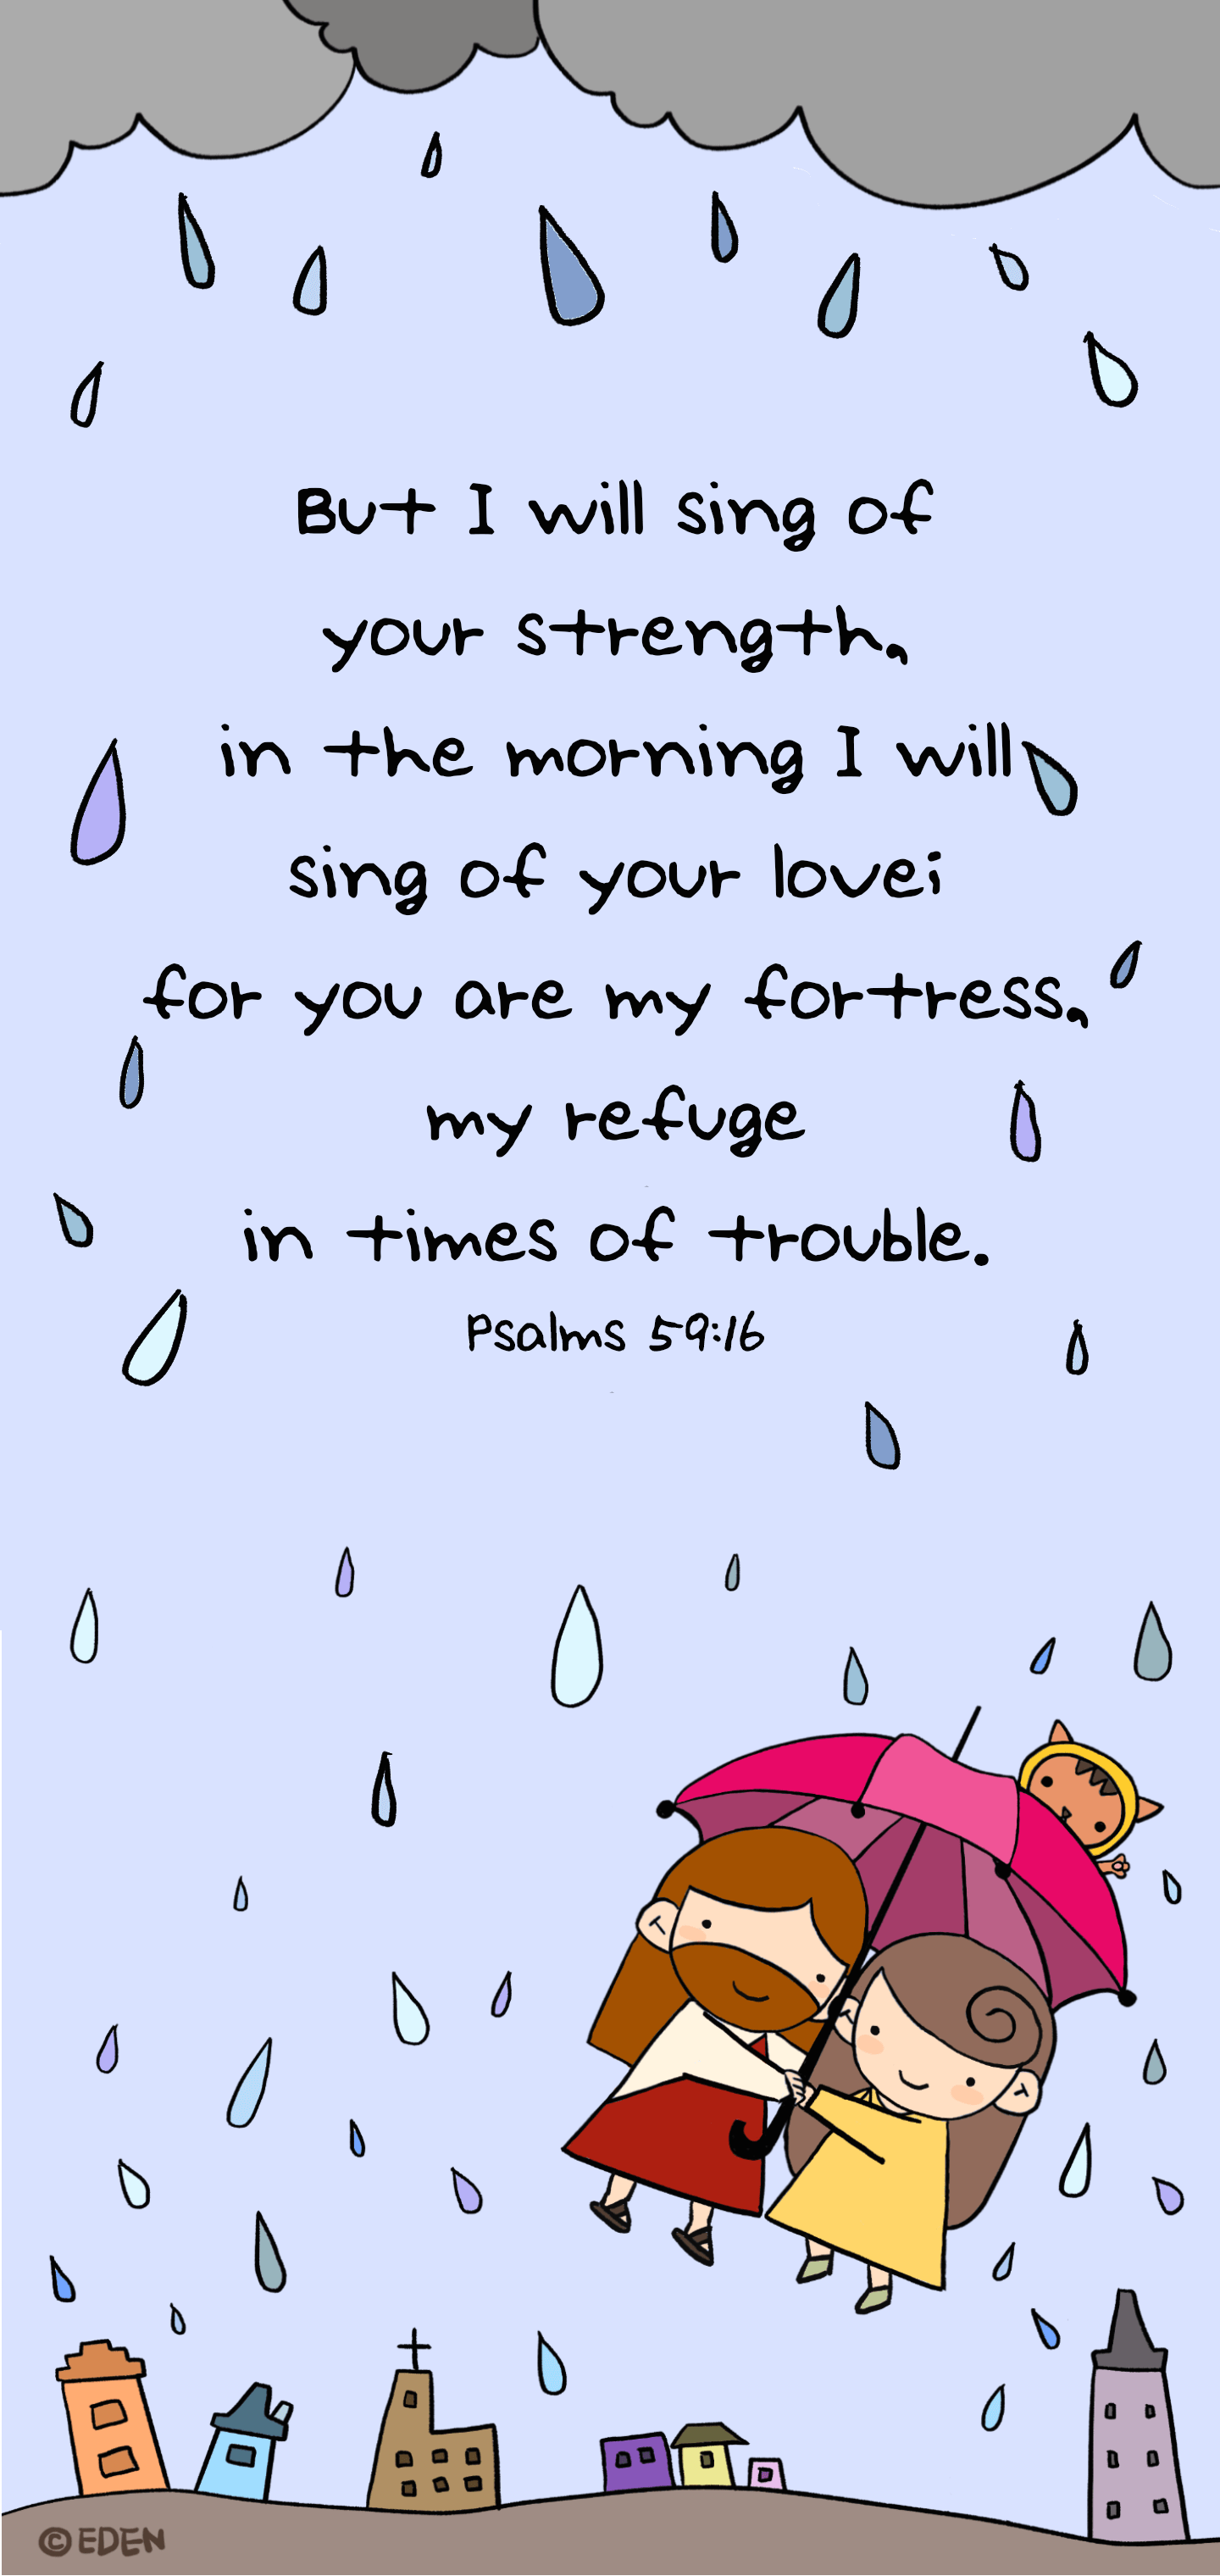 But I will sing of
your strength,
in the morning I will
sing of your love;
for you are my fortress,
my refuge
in times of trouble.
Psalms 59:16
© EDEN